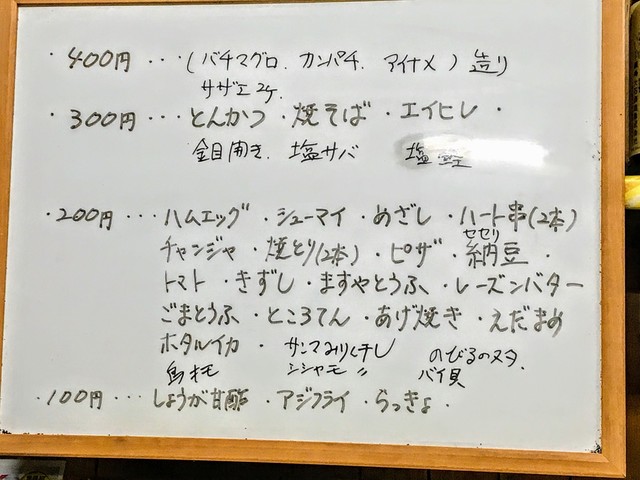 ・400円・・・(バチマグロ.カンパチ.アイナメ)造り
サザエ2ケ.
・300円・・・とんかつ・焼そば・エイヒレ・
金目開き.塩サバ 塩
・200円・・・ハムエッグ・シューマイ・めざし・ハート串(2本)
セセリ
チャンジャ・焼とり(2本)・ピザ・納豆・
トマト・きずし・ますやとうふ・レーズンバター
ごまとうふ・ところてん・あげ焼き・えだまめ
ホタルイカ・サンマみりん干し のびるのヌタ.
シシャモ〃 バイ貝
・100円・・・しょうが甘酢・アジフライ・らっきょ・